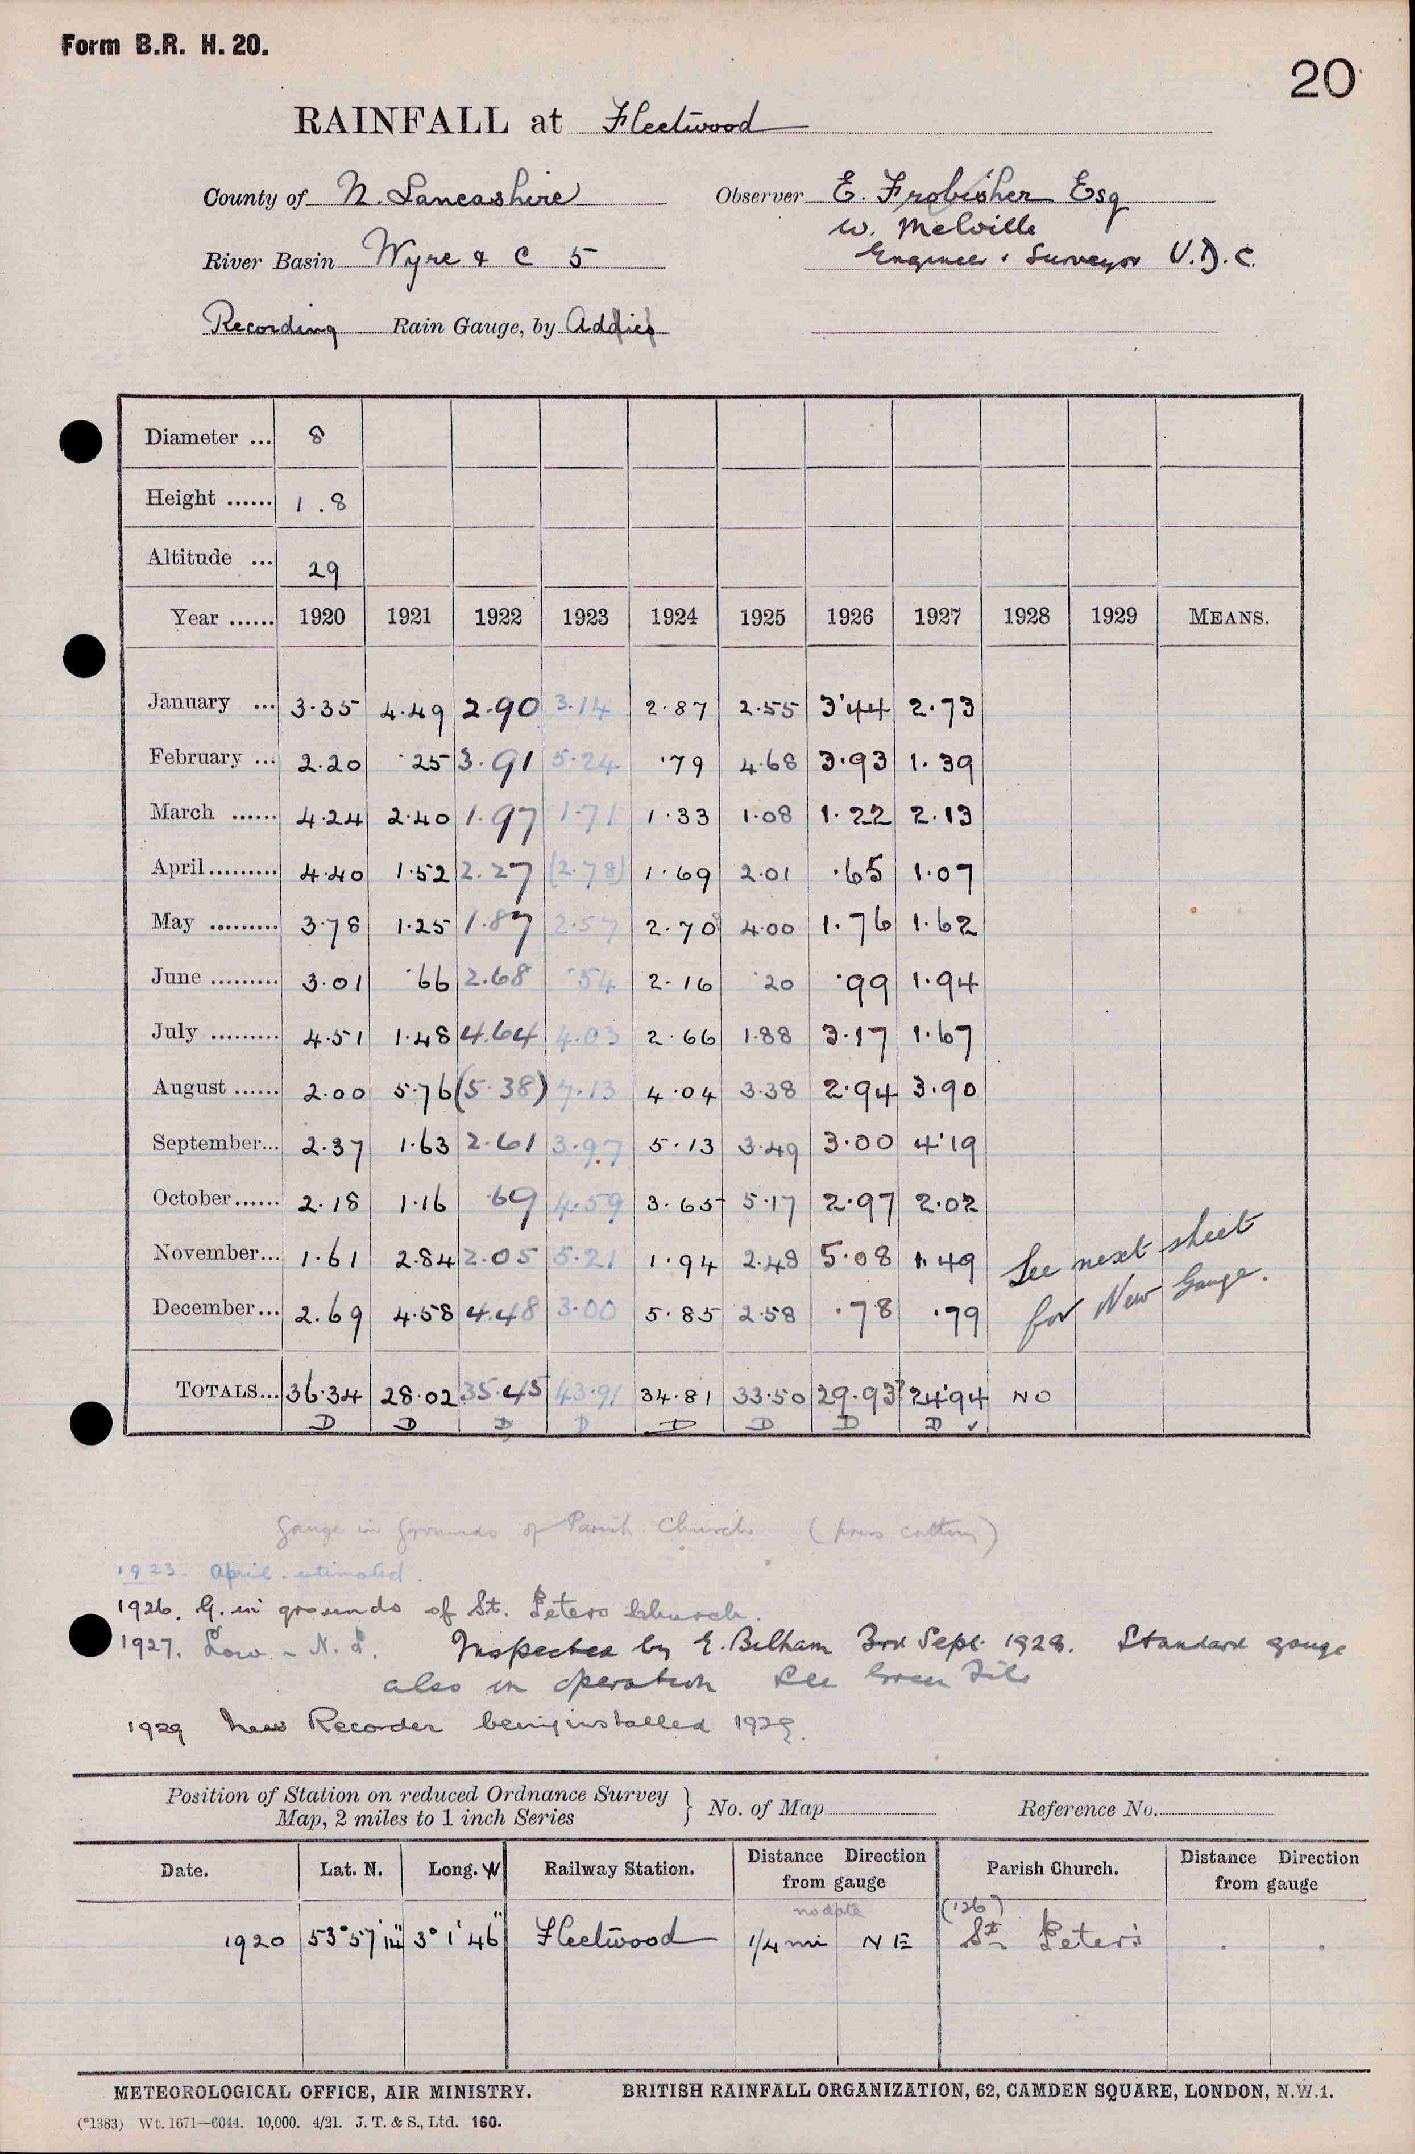 Form B.R. H. 20.
20
RAINFALL at Fleetwood
County of N. Lancashire Observer E. Frobisher Esq
W. Melville
River Basin Wyre & C 5 Engineer & Surveyor U.D.C.
Recording Rain Gauge, by Addies
Diameter ... 8
Height ...... 1.8
Altitude ... 29
Year ...... 1920 1921 1922 1923 1924 1925 1926 1927 1928 1929 MEANS.
January ... 3.35 4.49 2.90 3.14 2.87 2.55 3.44 2.73
February ... 2.20 .25 3.91 5.24 .79 4.68 3.93 1.39
March ...... 4.24 2.40 1.97 1.71 1.33 1.08 1.22 2.13
April......... 4.40 1.52 2.27 (2.78) 1.69 2.01 .65 1.07
May ......... 3.78 1.25 1.87 2.57 2.70 4.00 1.76 1.62
June ......... 3.01 .66 2.68 .54 2.16 .20 .99 1.94
July ......... 4.51 1.48 4.64 4.03 2.66 1.88 3.17 1.67
August ...... 2.00 5.76 (5.38) 7.13 4.04 3.38 2.94 3.90
September... 2.37 1.63 2.61 3.97 5.13 3.49 3.00 4.19
October...... 2.18 1.16 .69 4.59 3.65 5.17 2.97 2.02
November... 1.61 2.84 2.05 5.21 1.94 2.48 5.08 1.49 See next sheet
December... 2.69 4.58 4.48 3.00 5.85 2.58 .78 .79 for New Gauge.
TOTALS... 36.34 28.02 35.45 43.91 34.81 33.50 29.93 24.94 NO
D D D D D D D D ✓
Gauge in grounds of Parish Church (press cutting)
1923. April. estimated.
1926. G. in grounds of St. Peters Church.
1927. Low - N.P. Inspected by E. Bilham 3rd Sept. 1928. Standard gauge
also in operation See Green File
1929 New Recorder being installed 1929.
Position of Station on reduced Ordnance Survey
Map, 2 miles to 1 inch Series } No. of Map Reference No.
Date. Lat. N. Long. W Railway Station. Distance Direction from gauge Parish Church. Distance Direction from gauge
no date ('26)
1920 53° 57' 14" 3° 1' 46" Fleetwood 1/4 mi NE St Peter's
METEOROLOGICAL OFFICE, AIR MINISTRY. BRITISH RAINFALL ORGANIZATION, 62, CAMDEN SQUARE, LONDON, N.W.1.
(*1383) Wt. 1671—6044. 10,000. 4/21. J. T. & S., Ltd. 160.